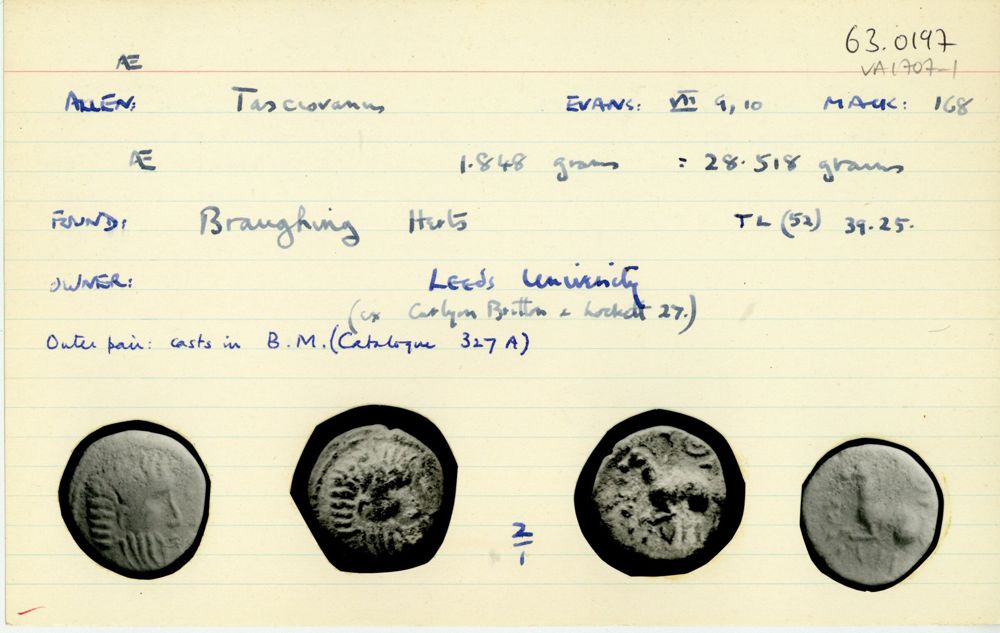 63.0197
VA1707-1
Æ
ALLEN: Tasciovanus EVANS: VII 9, 10 MACK: 168
Æ 1.848 grams = 28.518 grams
FOUND: Braughing Herts TL (52) 39.25.
OWNER: Leeds University
(ex Carlyon Britton & Lockett 27.)
Outer pair: casts in B.M. (Catalogue 327A)
2
1